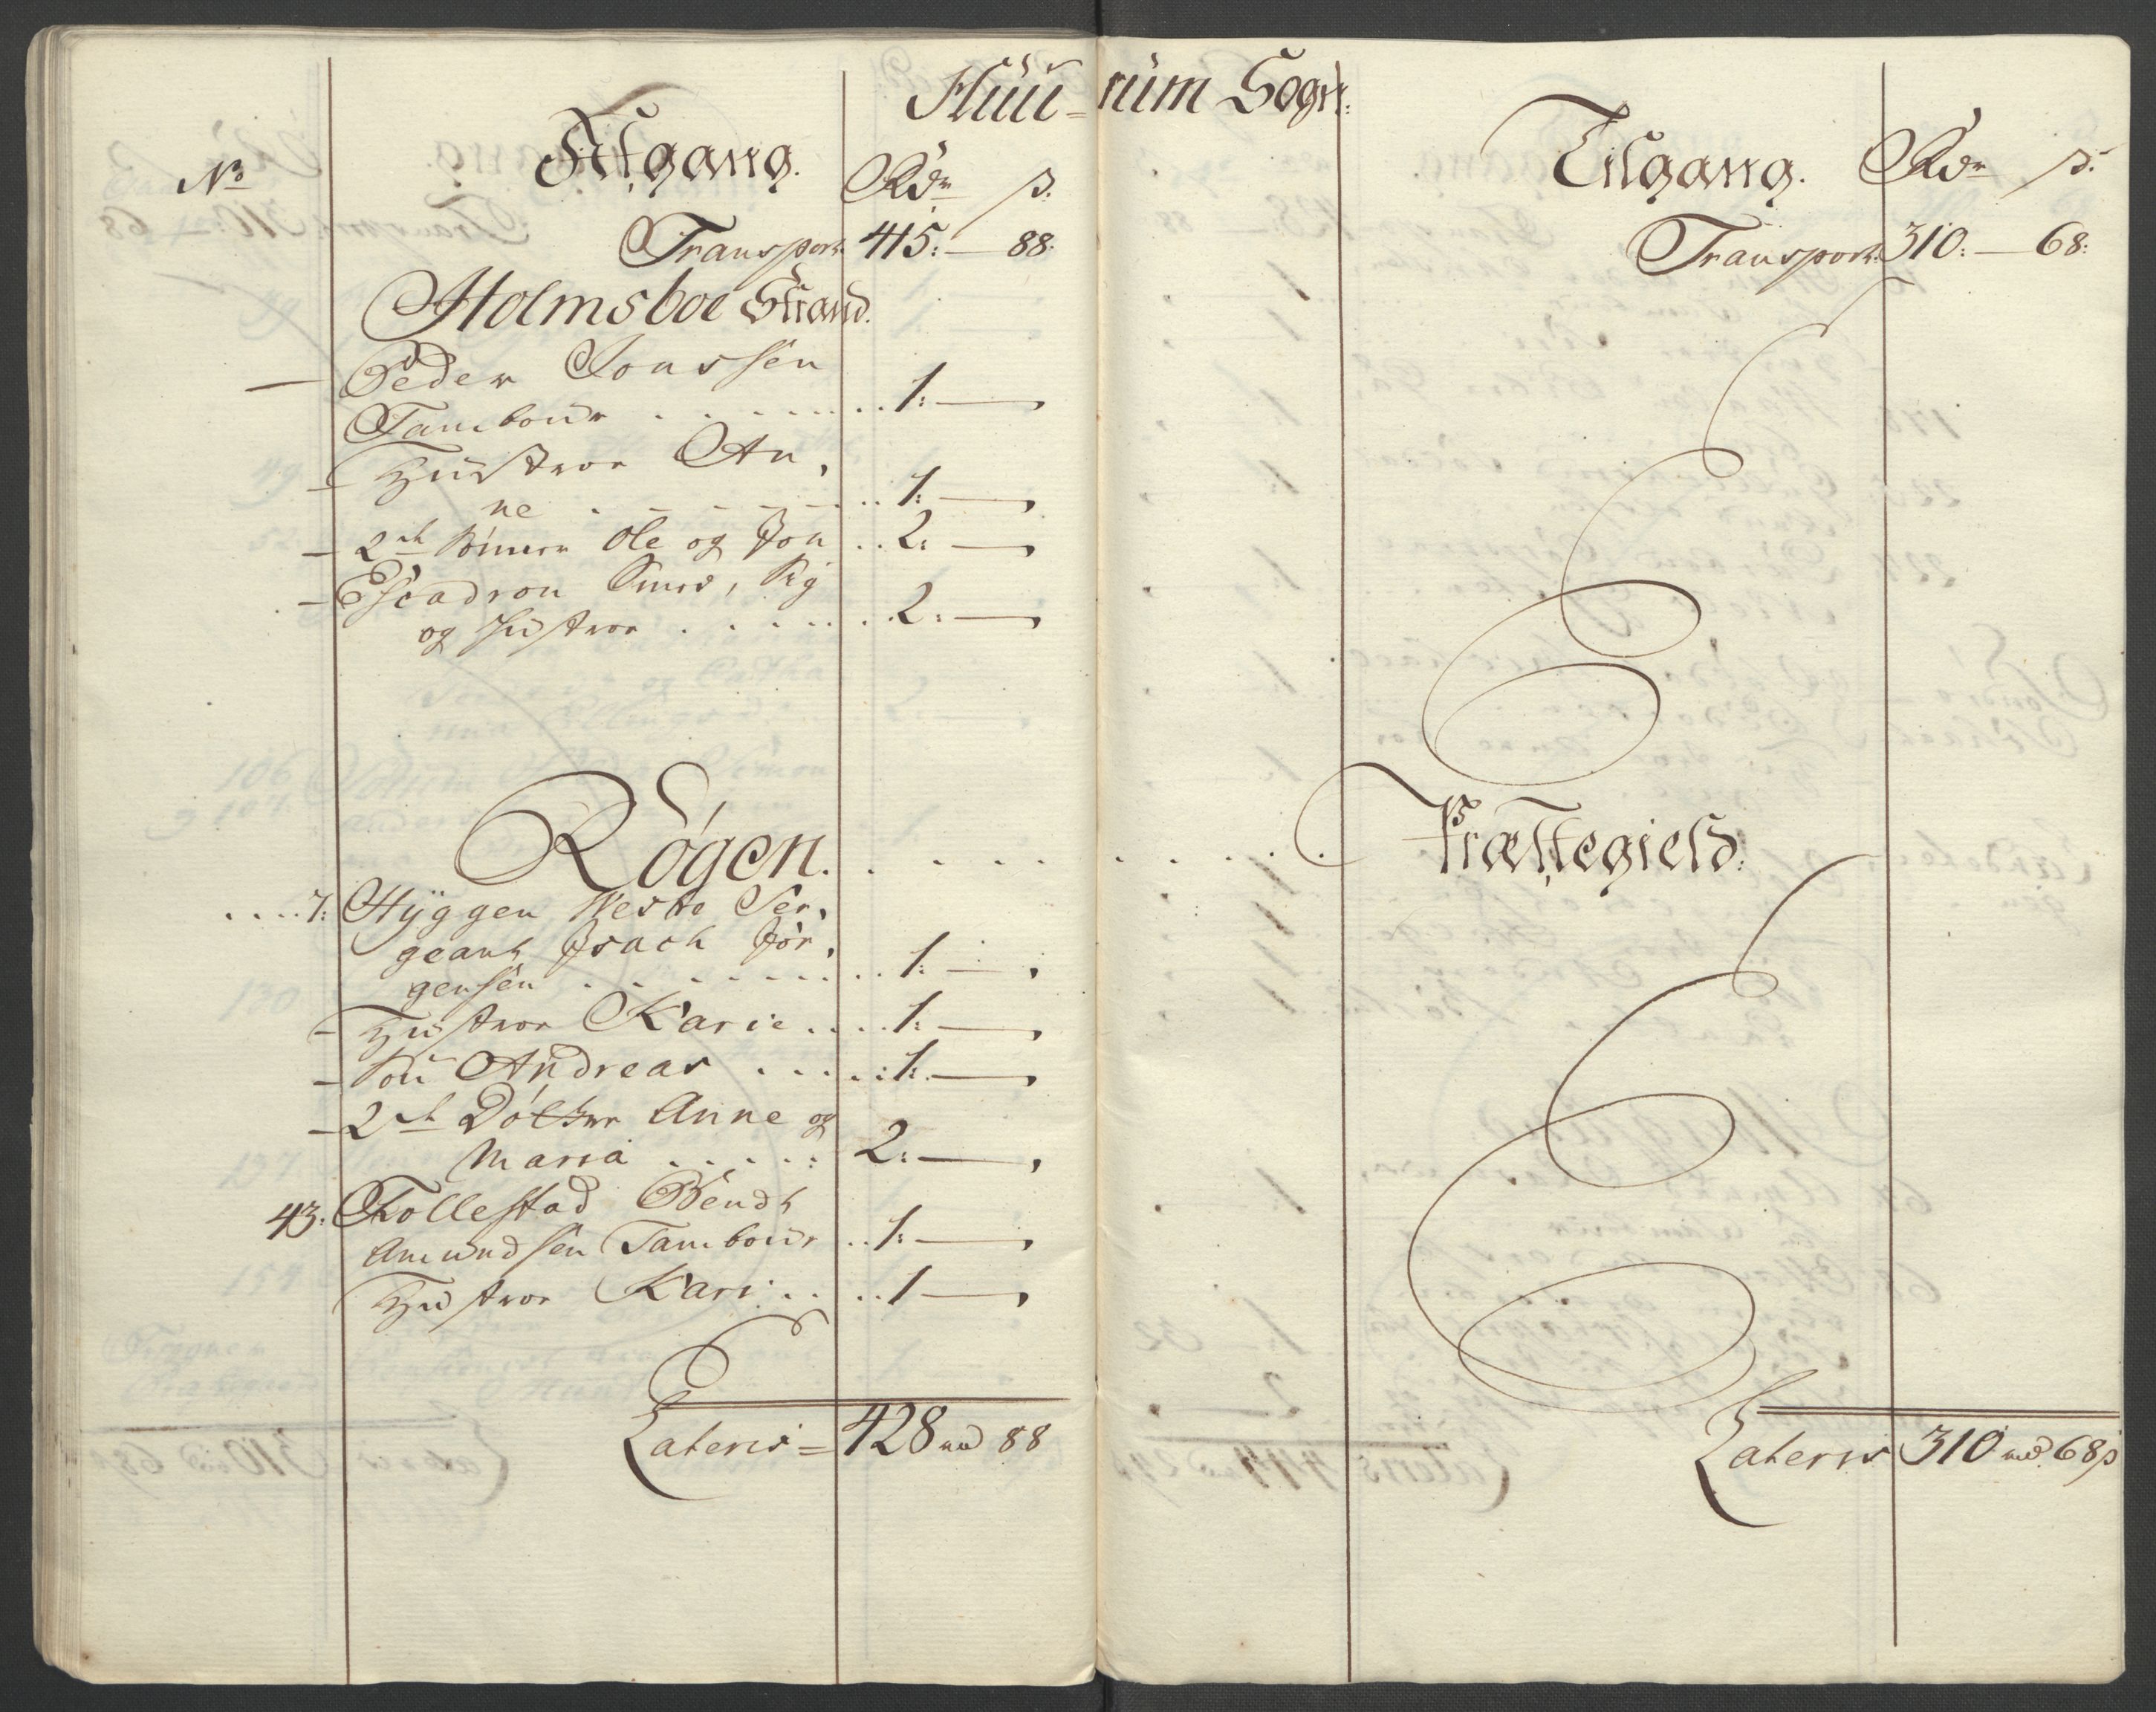 Huu-rum Sogn:
No
Afgang.
Rdr ß:
Transport 415: — 88:
Holmsboe Strand.
— Peder Jonssen
Tambour . . . . . . . . 1: —
— Hustroe An,
ne . - - - - - . . 1: —
— 2de Børnere Ole og Jon . . 2: —
— Escadron Smed,
og Hustroe . . . . . . . 2: —
Røgen.
. . . . 7: Hyggen Westre Ser,
geant Isach Jør,
gensen . . . . . . . . 1: —
— Hustroe Karie . . . . 1: —
— Søn Andreas . . . . . 1: —
— 2de Døttre Anne og
Maria . . . . . : 2: —
43: Follestad Bendt
Amundsen Tambour . . 1: —
Hustroe Kari . . . . 1 —
Lateris = 428 rd 88
Tilgang. Rdr ß:
Transport: 310: — 68:
. . . . . . . . Præstegield:
Lateris 310 rd. 68ß